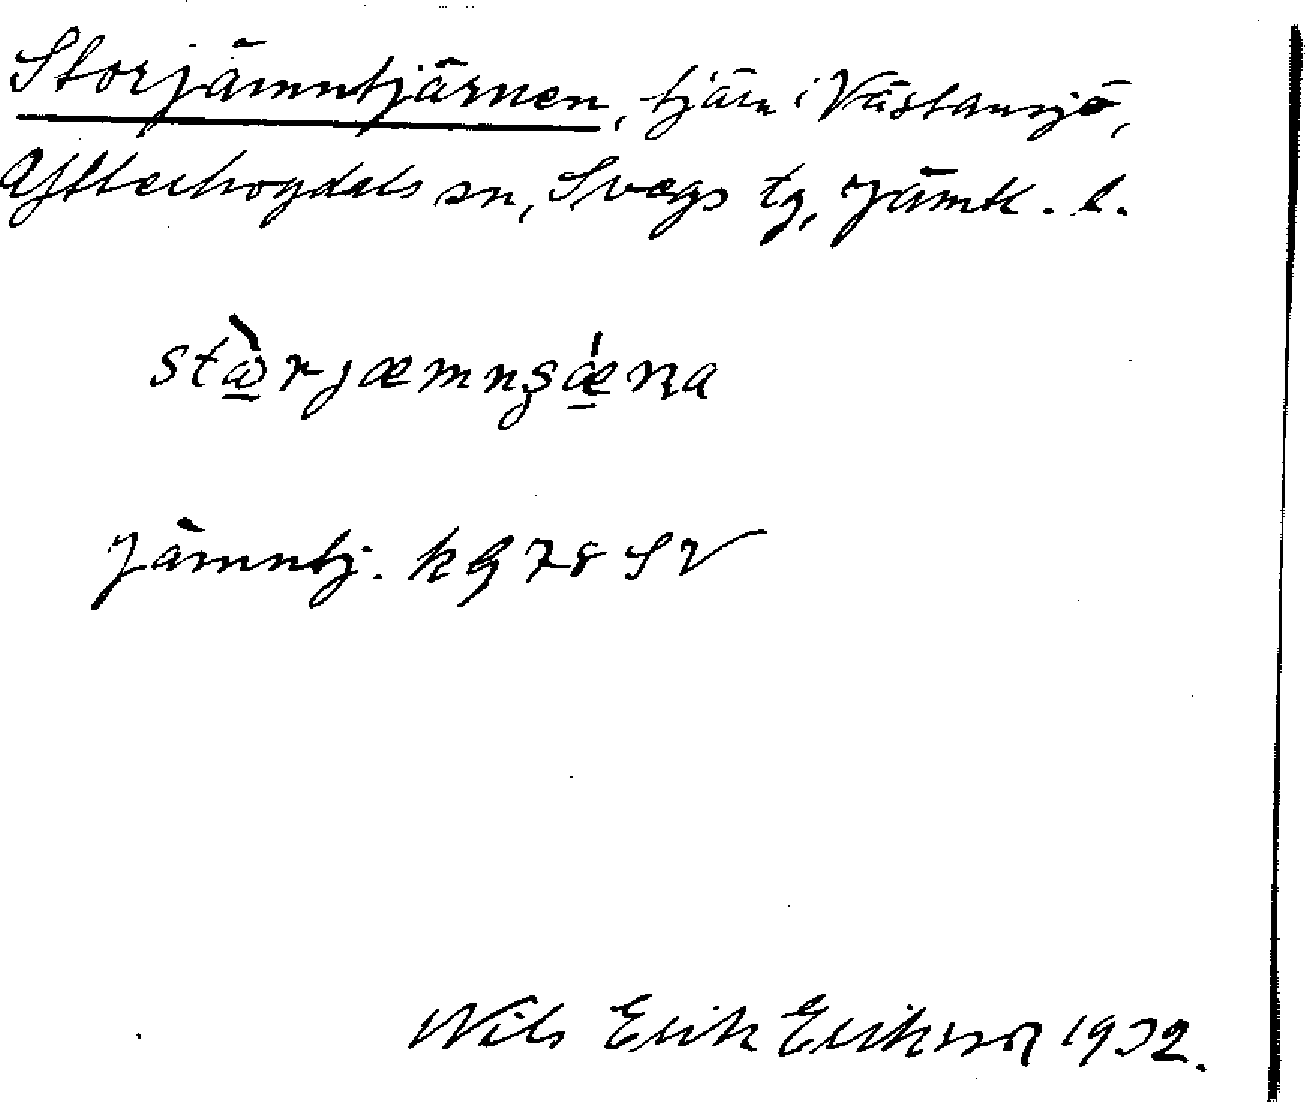 Storjämntjärnen, tjärn i Västansjö,
Ytterhogdals sn, Svegs tg, Jämtl. l.
stæ̀rjæmnʂǽɳa
Jämntj. kg 78 SV
Nils Erik Erikson 1932.